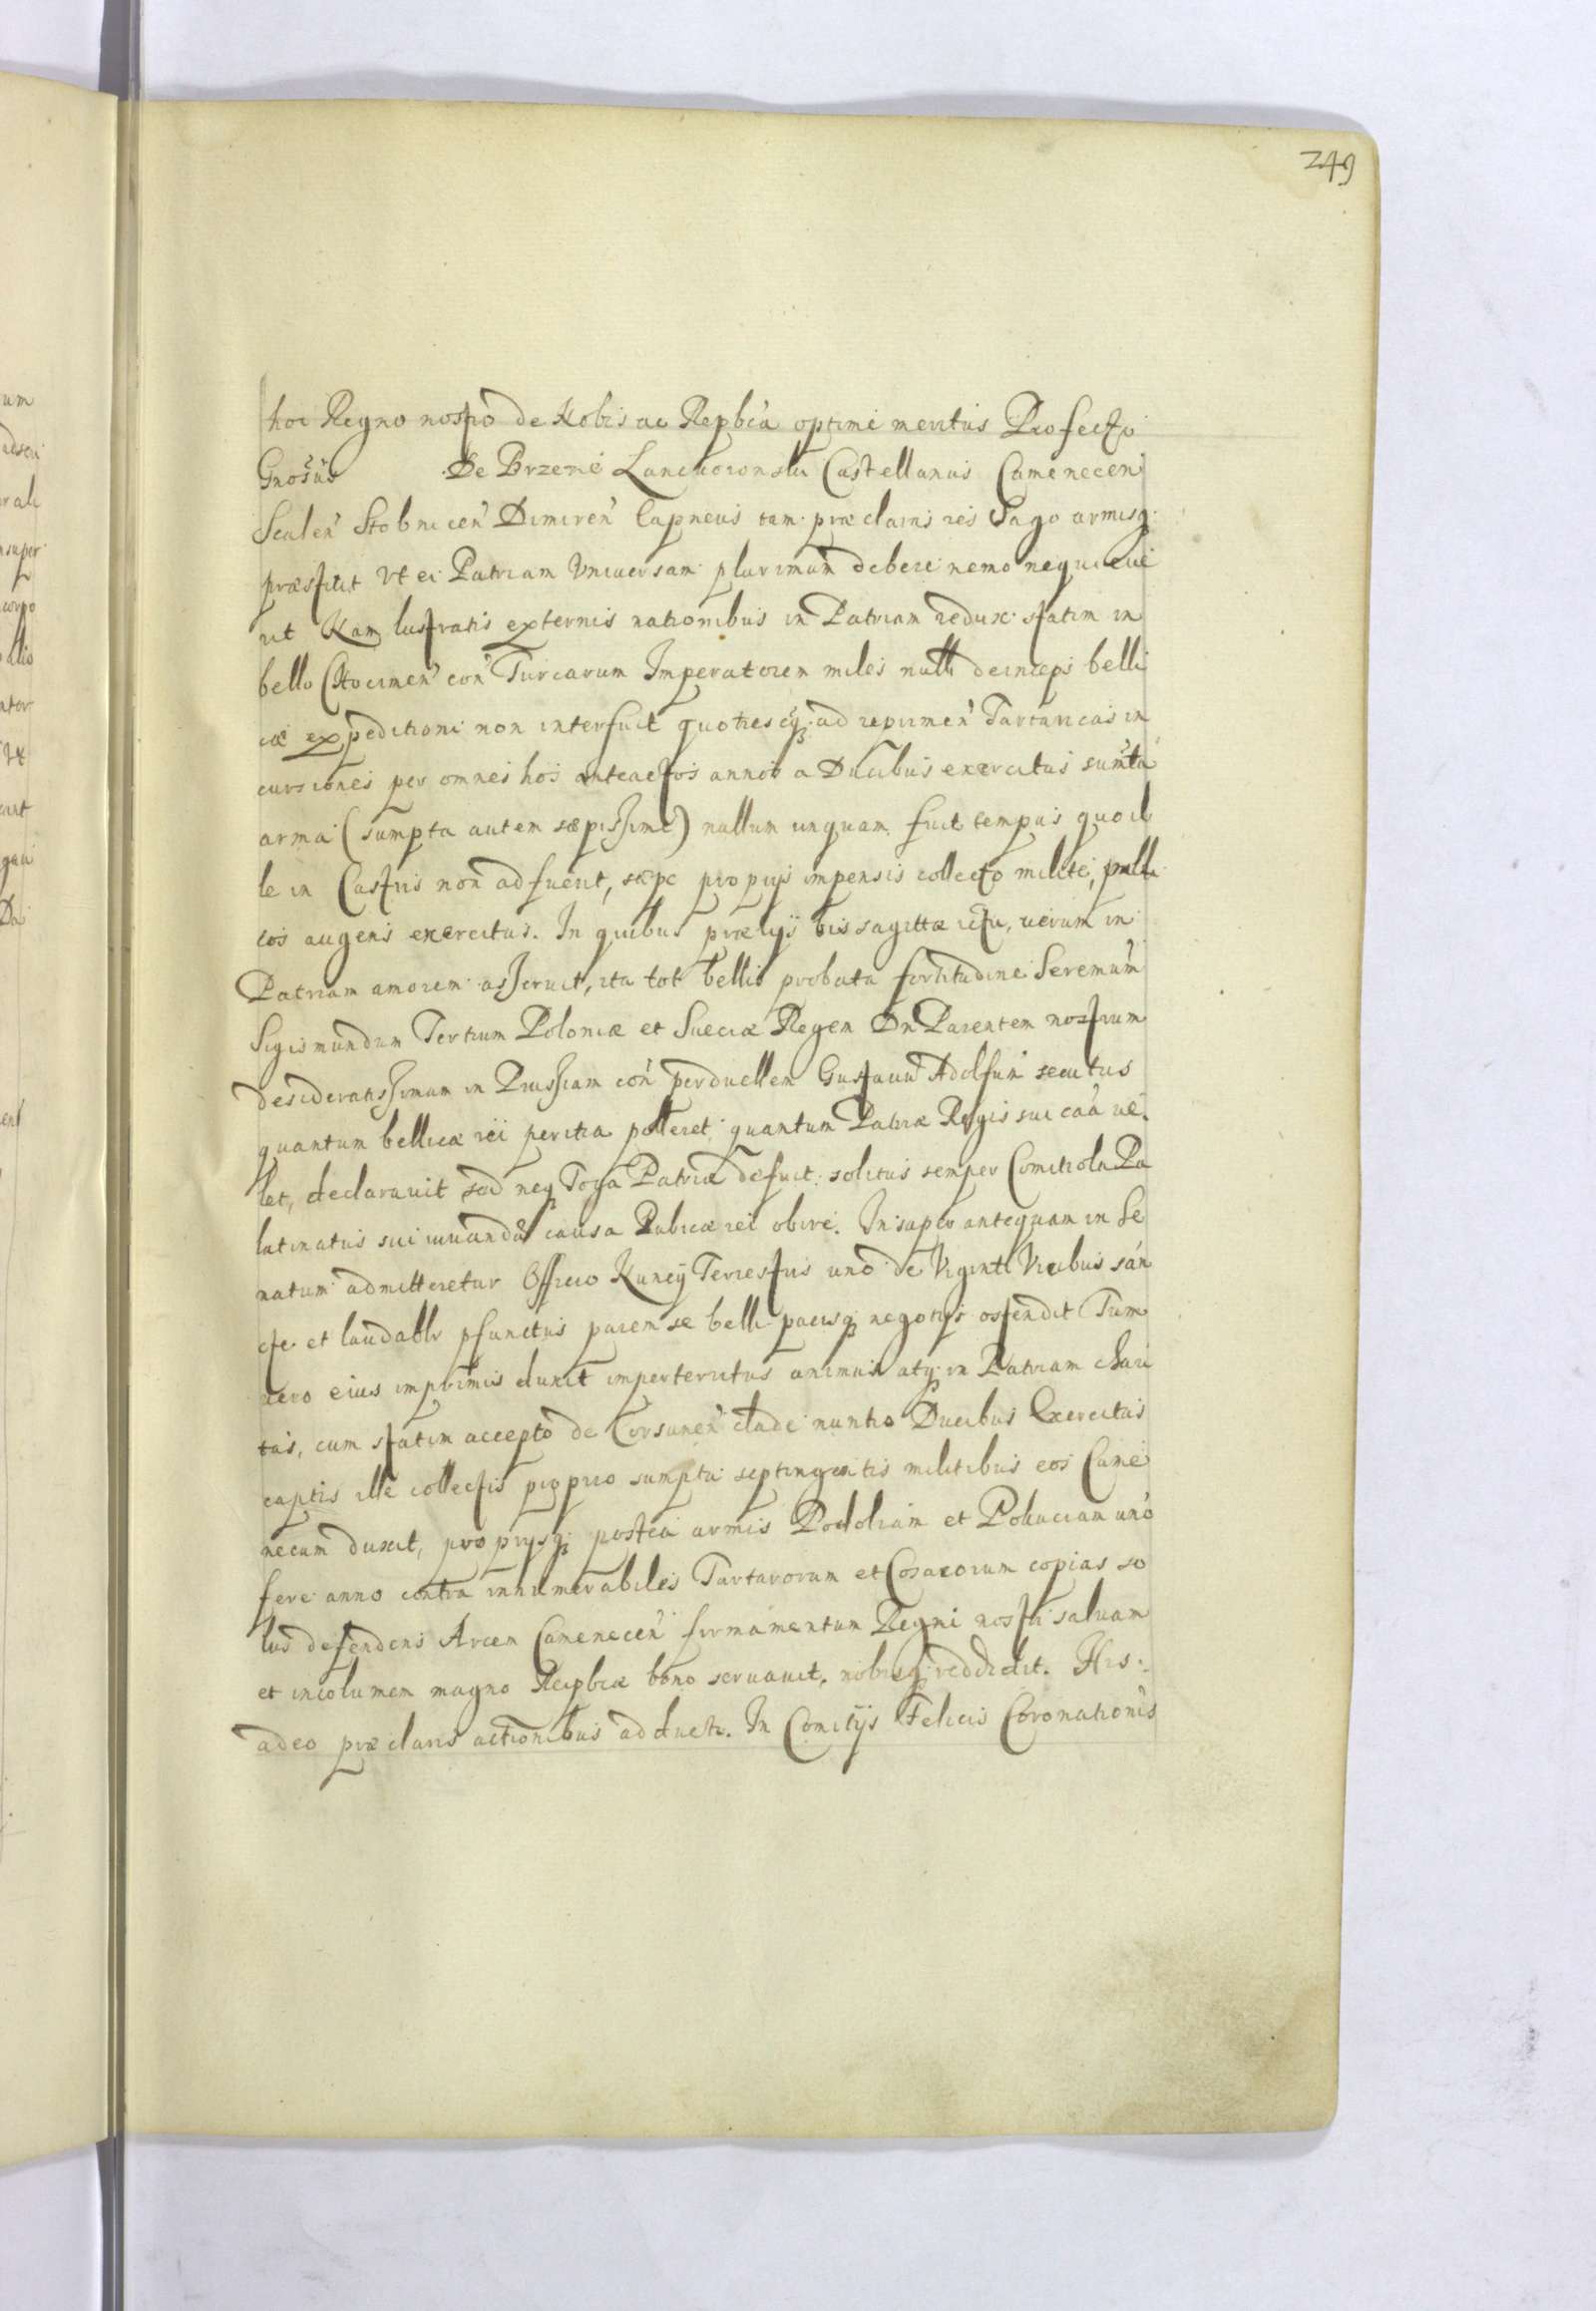 249
hoc Regno nostro de Nobis ac Repbca optime meritus Profecto
Gnosus De Brzezie Lanckoronski Castellanus Camenecen
Scalen Stobnicen Dimiren Capneus tam præclaris res Sago armisq
præstitit Vt ei Patriam Vniversam plurimum debere nemo nequiveri
rit Nam lustratis externis nationibus in Patriam redux statim in
bello Chocimen con Turcarum Imperatorem miles nulli deinceps belli
cæ expeditioni non interfuit quotiescq ad reprimen Tartaricas in
cursiones per omnes hos anteactos annos a Ducibus exercitus sumta
arma (sumpta autem sæpissime) nullum unquam fuit tempus quo il
le in Castris non adfuerit, sæpe proprijs impensis collecto milite, publi
cos augens exercitus. In quibus prælijs bis sagittæ ictu, verum in
Patriam amorem asseruit, ita tot bellis probata fortitudine Seremum
Sigismundum Tertium Poloniæ et Sueciæ Regem Dn Parentem nostrum
desideratissimum in Prussiam con perduellem Gustavum Adolfum secutus
quantum bellicæ rei peritia polleret, quantum Patriæ Regis sui caa ve
let, declaravit sed neq Toga Patriæ defuit: solitus semper Comitiola Pa
latinatus sui iuvandæ causa Publicæ rei obire. Insuper antequam in Se
natum admitteretur Officio Nuncij Terrestris uno de Viginti Vicibus san
cte et laudablr pfunctus parem se belli pacisq negotijs ostendit Tum
vero eius imprimis eluxit imperterritus animus atq in Patriam chari
tas, cum statim accepto de Corsunen clade nuntio Ducibus Exercitus
captis ille collectis proprio sumptu septingentis militibus eos Came
necum duxit, proprijsq postea armis Podoliam et Pokuciam uno
fere anno contra innumerabiles Tartarorum et Cosacorum copias so
lus defendens Arcem Camenecen firmamentum Regni nostri salvam
et incolumem magno Reipbcæ bono servavit, nobisq reddidit. His
adeo præclaris actionibus adducti. In Comitijs Felicis Coronationis